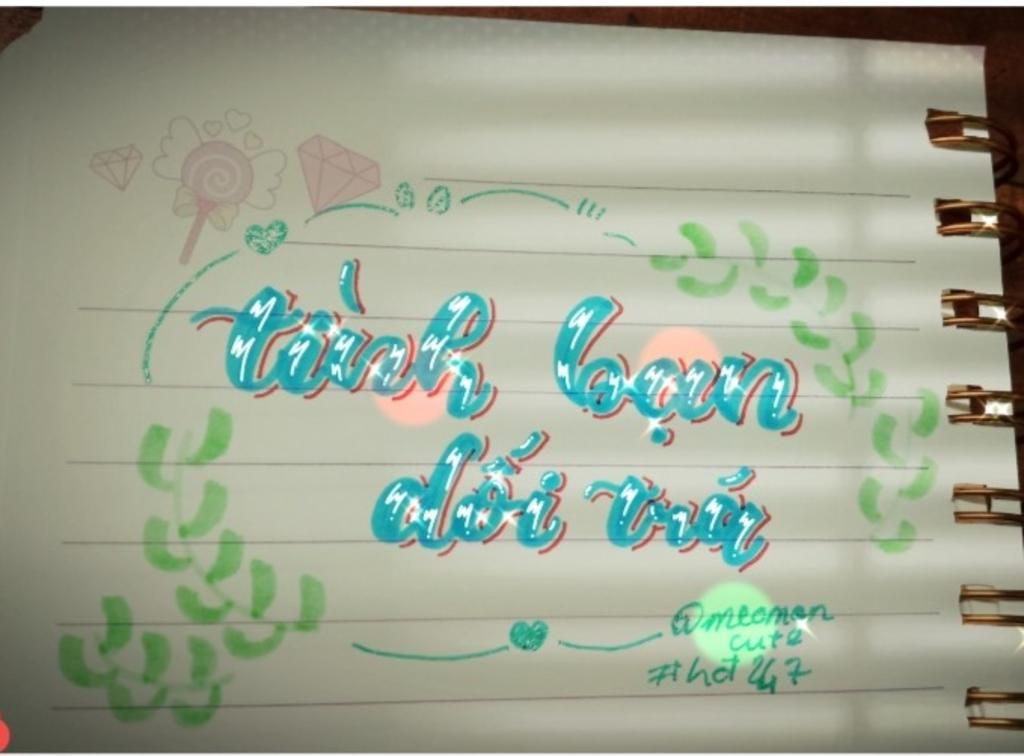 tình bạn
dối trá
@meomon
cute
#hot 247